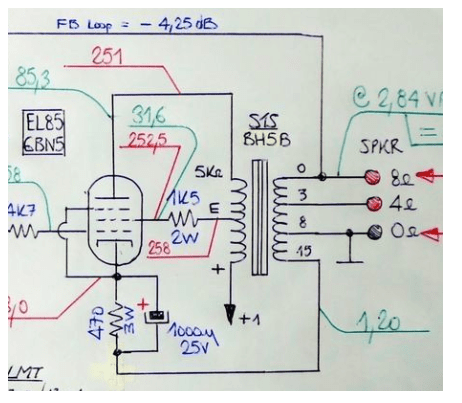 FB Loop = - 4,25 dB
251
85,3
@ 2,84 V
31,6
252,5
EL85
6BN5
S1S
BH5B
SPKR
=
5KΩ
0
8Ω
58
1K5
E
3
4Ω
4K7
2W
258
8
0Ω
+
15
+1
3,0
+
470
3W
1000µ
25V
1,20
LMT